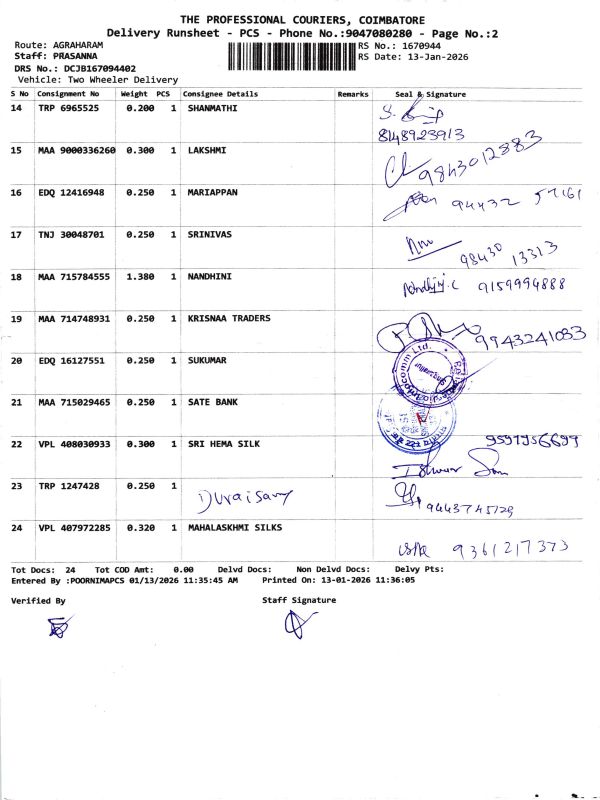 THE PROFESSIONAL COURIERS, COIMBATORE
Delivery Runsheet - PCS - Phone No.:9047080280 - Page No.:2
Route: AGRAHARAM RS No.: 1670944
Staff: PRASANNA RS Date: 13-Jan-2026
DRS No.: DCJB167094402
Vehicle: Two Wheeler Delivery
S No Consignment No Weight PCS Consignee Details Remarks Seal & Signature
14 TRP 6965525 0.200 1 SHANMATHI
8148923913
15 MAA 9000336260 0.300 1 LAKSHMI 9843012883
16 EDQ 12416948 0.250 1 MARIAPPAN 94432 57161
17 TNJ 30048701 0.250 1 SRINIVAS 98430 13313
18 MAA 715784555 1.380 1 NANDHINI 9159994888
19 MAA 714748931 0.250 1 KRISNAA TRADERS 9943241083
20 EDQ 16127551 0.250 1 SUKUMAR
21 MAA 715029465 0.250 1 SATE BANK
22 VPL 408030933 0.300 1 SRI HEMA SILK 9597956699
23 TRP 1247428 0.250 1 Duraisamy 9443745129
24 VPL 407972285 0.320 1 MAHALASKHMI SILKS 9361217373
Tot Docs: 24 Tot COD Amt: 0.00 Delvd Docs: Non Delvd Docs: Delvy Pts:
Entered By :POORNIMAPCS 01/13/2026 11:35:45 AM Printed On: 13-01-2026 11:36:05
Verified By Staff Signature